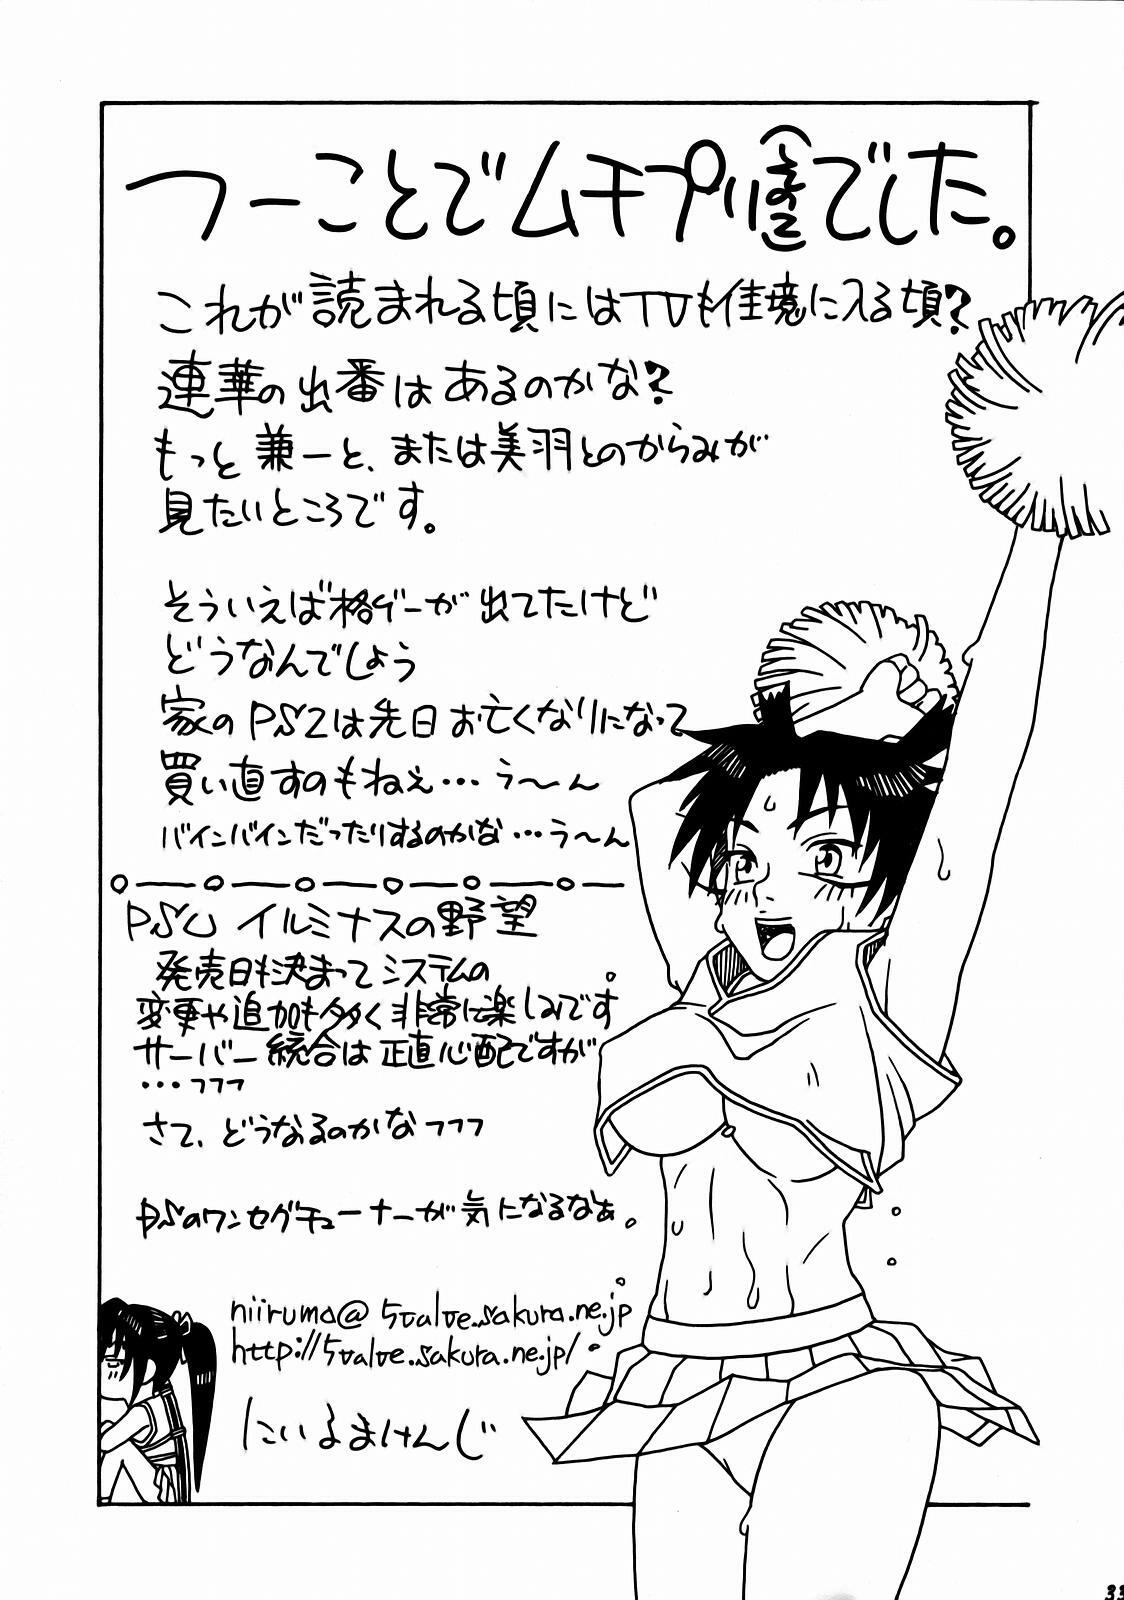 つーことでムチプリ(その2)でした。
これが読まれる頃にはTVも佳境に入る頃?
連華の出番はあるのかな?
もっと兼一と、または美羽とのからみが
見たいところです。
そういえば格ゲーが出てたけど
どうなんでしょう
家のPS2は先日お亡くなりになって
買い直すのもねぇ…う〜ん
バインバインだったりするのかな…う〜ん
PSU イルミナスの野望
発売日も決まってシステムの
変更や追加も多く非常に楽しみです
サーバー統合は正直心配ですが
…フフフ
さて、どうなるのかなフフフ
PSのワンセグチューナーが気になるなぁ。
niiruma@5valve.sakura.ne.jp
http://5valve.sakura.ne.jp/
にいるまけんじ
33